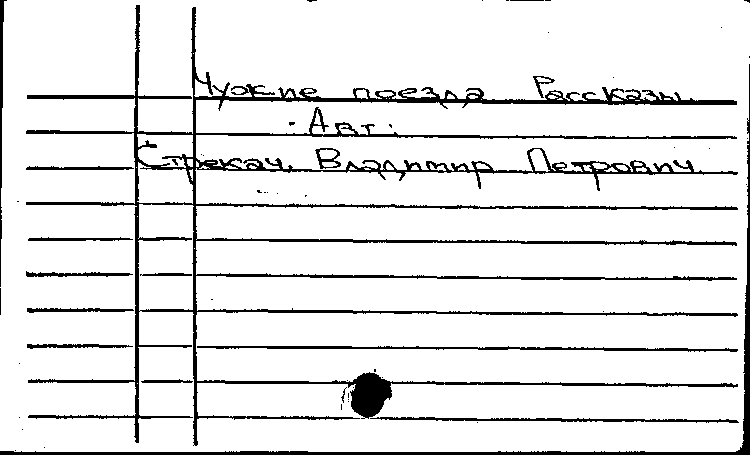 Чужие поезда Рассказы.
Авт.:
Стрекач, Владимир Петрович.